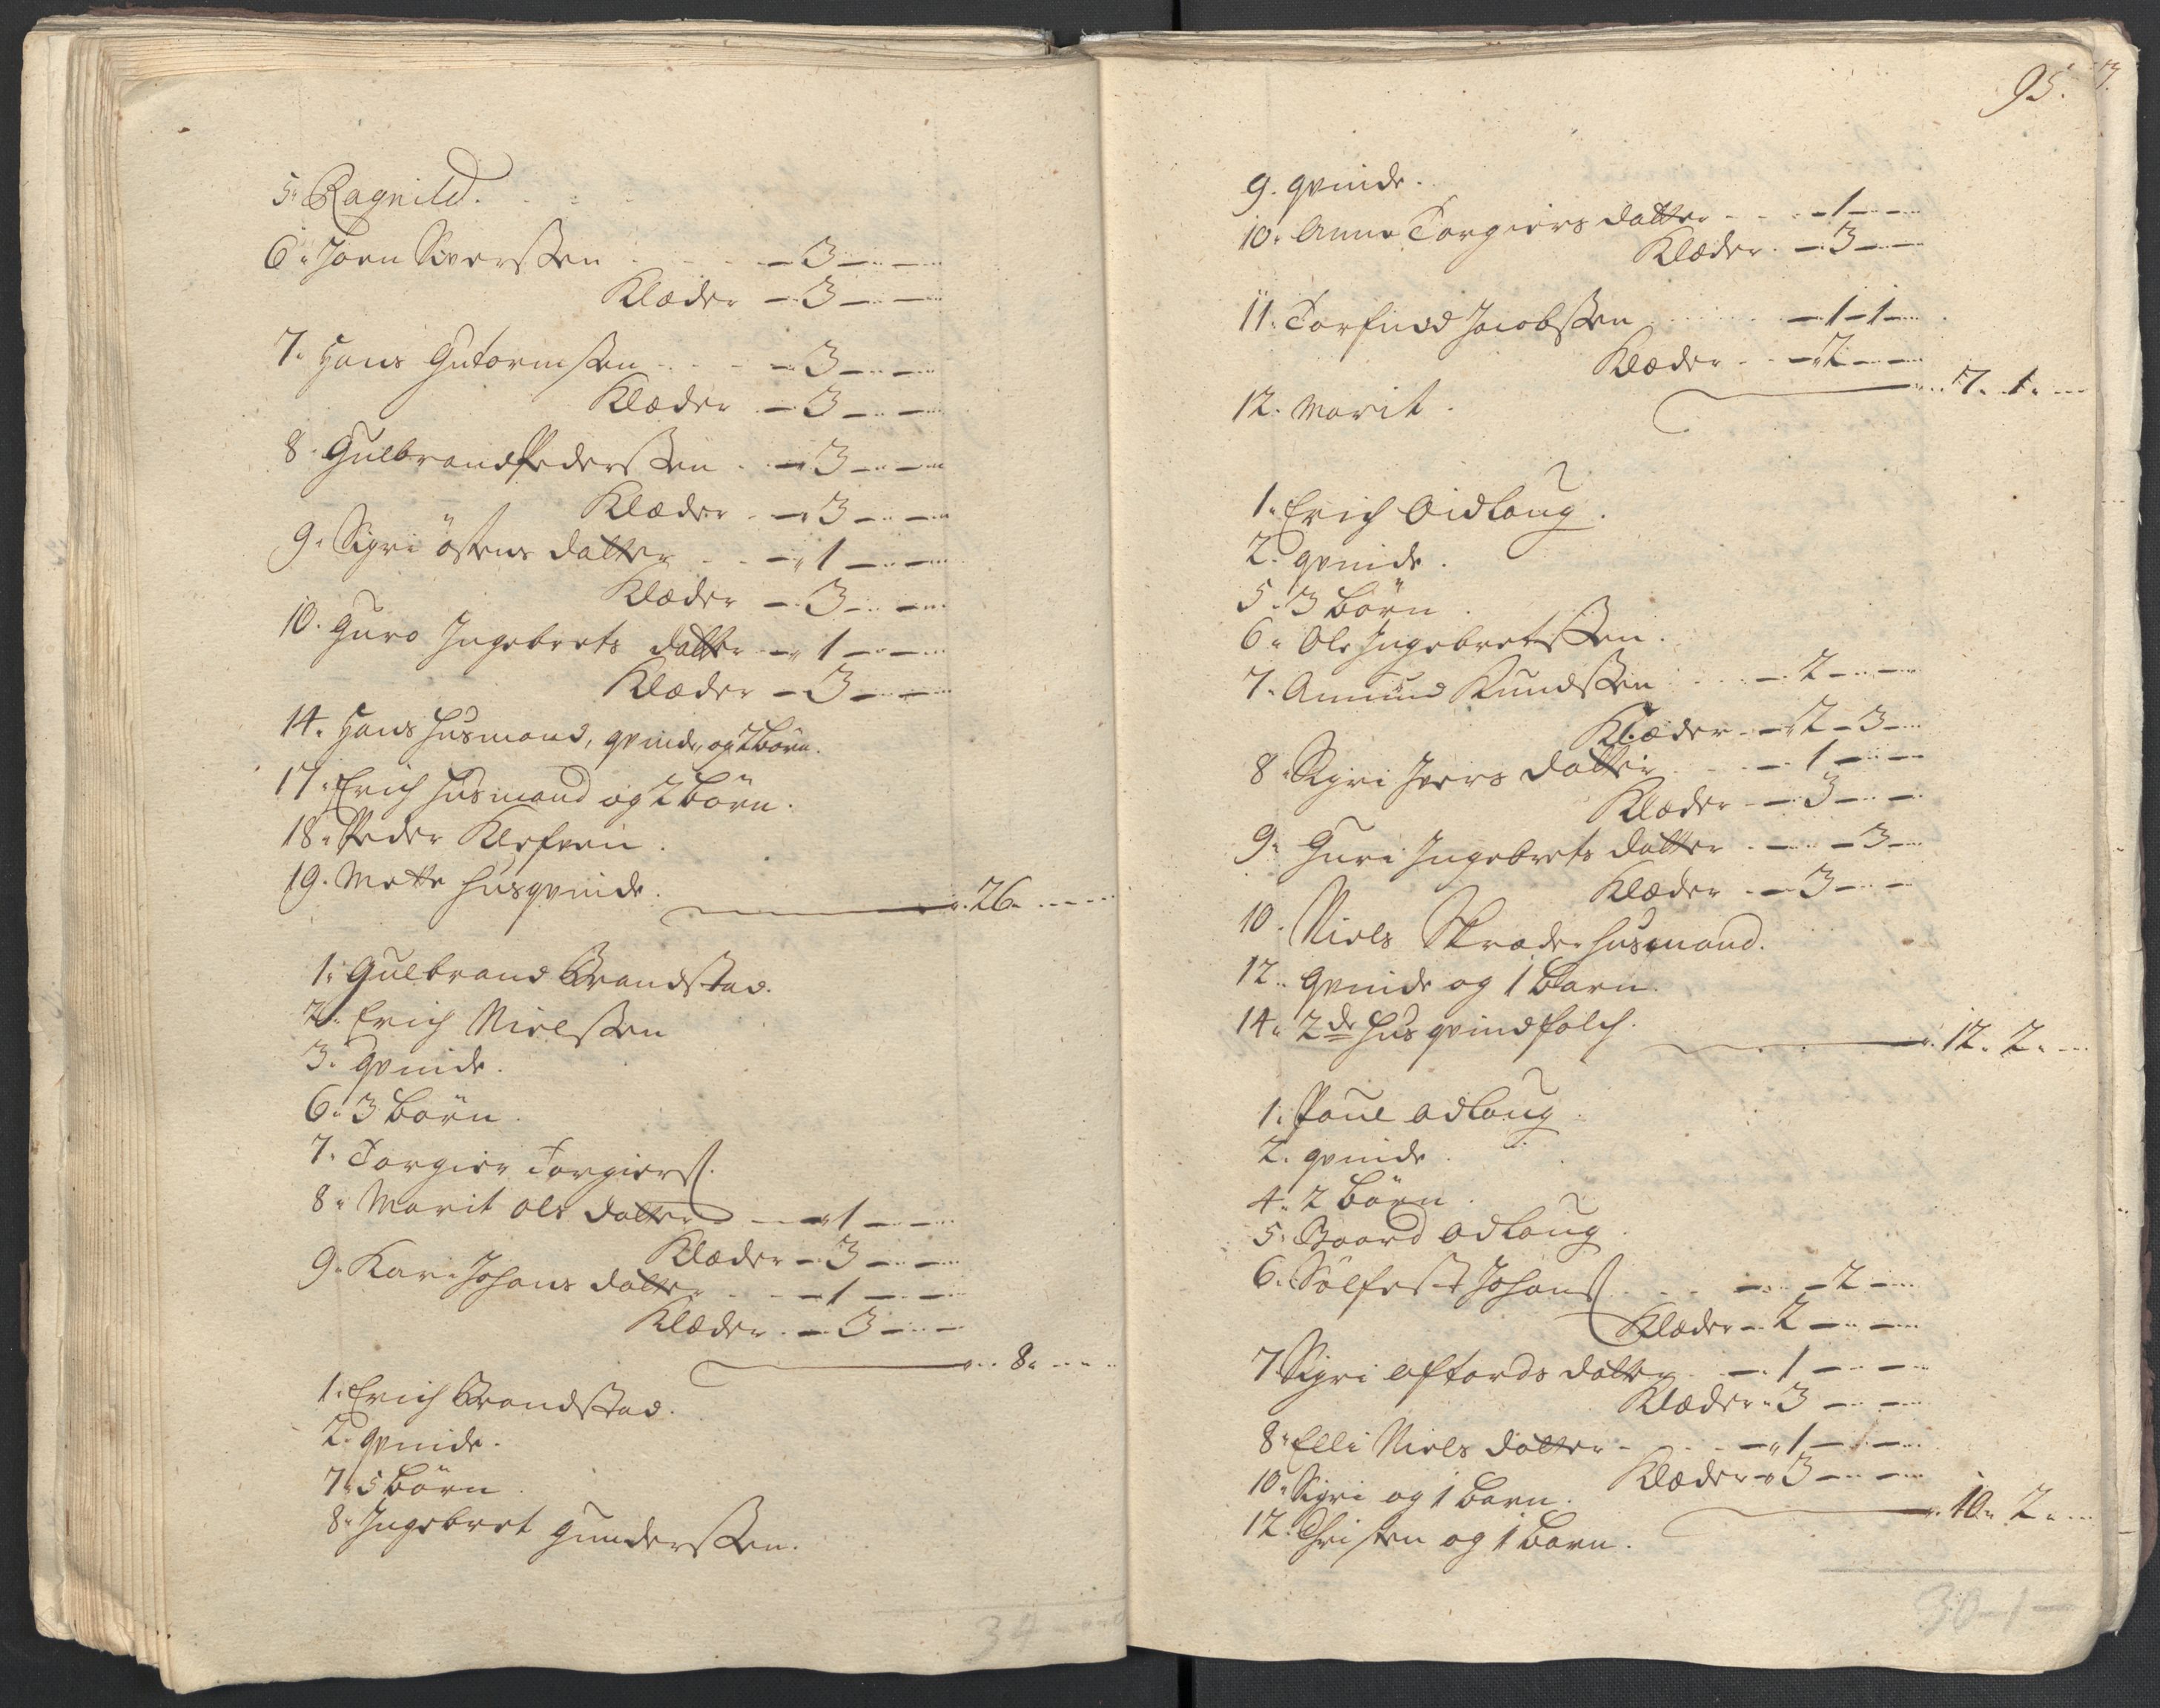 5. Ragnild.
6. Joen Siverssen - 3 - -
Klæder - 3 - -
7. Hans Gutormssen - 3 - -
Klæder - 3 - -
8. Gulbrand Pederssen - 3 - -
Klæder - 3 - -
9. Sigri östens datter - 1 - -
Klæder - 3 - -
10. Guro Ingebrets datter - 1 - -
Klæder - 3 - -
14. Hans husmand, qvinde, og 2 börn.
17. Erich husmand og 2 börn.
18. Peder Klefven.
19. Mette husqvinde.
26. - -
1. Gulbrand Brandstad.
2. Erich Nielssen
3. qvinde.
6. 3 börn.
7. Torgier Torgierss.
8. Marit Ols datter - 1 - -
Klæder - 3 - -
9. Kari Johans datter - 1 - -
Klæder - 3 - -
8. - -
1. Erich Brandstad.
2. qvinde.
7. 5 börn
8. Ingebret Gunderssen.
34 - -
95.
9. qvinde.
10. Anne Torgiers datter - 1 - -
Klæder - 3 - -
11. Torfind Jacobssen - 1 - 1 -
Klæder - 2 - -
7. 1. -
12. Marit.
1. Erich Oidloug.
2. qvinde.
5. 3 börn.
6. Ole Ingebretssen.
7. Amund Knudssen - 2 - -
Klæder - 2 - 3 -
8. Sigri Ivers datter - 1 - -
Klæder - 3 - -
9. Guri Ingebrets datter - - 3 -
Klæder - 3 - -
10. Niels Skræder husmand.
12. qvinde og 1 barn.
14. 2de husqvindfolch.
12. 2. -
1. Poul Odloug.
2. qvinde.
4. 2 börn.
5. Baard Odloug.
6. Sölfest Johanss - - 2 -
Klæder - 2 - -
7. Sigri datter - 1 - -
Klæder - 3 - -
8. Elli Niels datter - 1 - -
Klæder - 3 - -
10. Sigri og 1 barn.
10. 2. -
12. Christen og 1 barn.
30 - 1 -